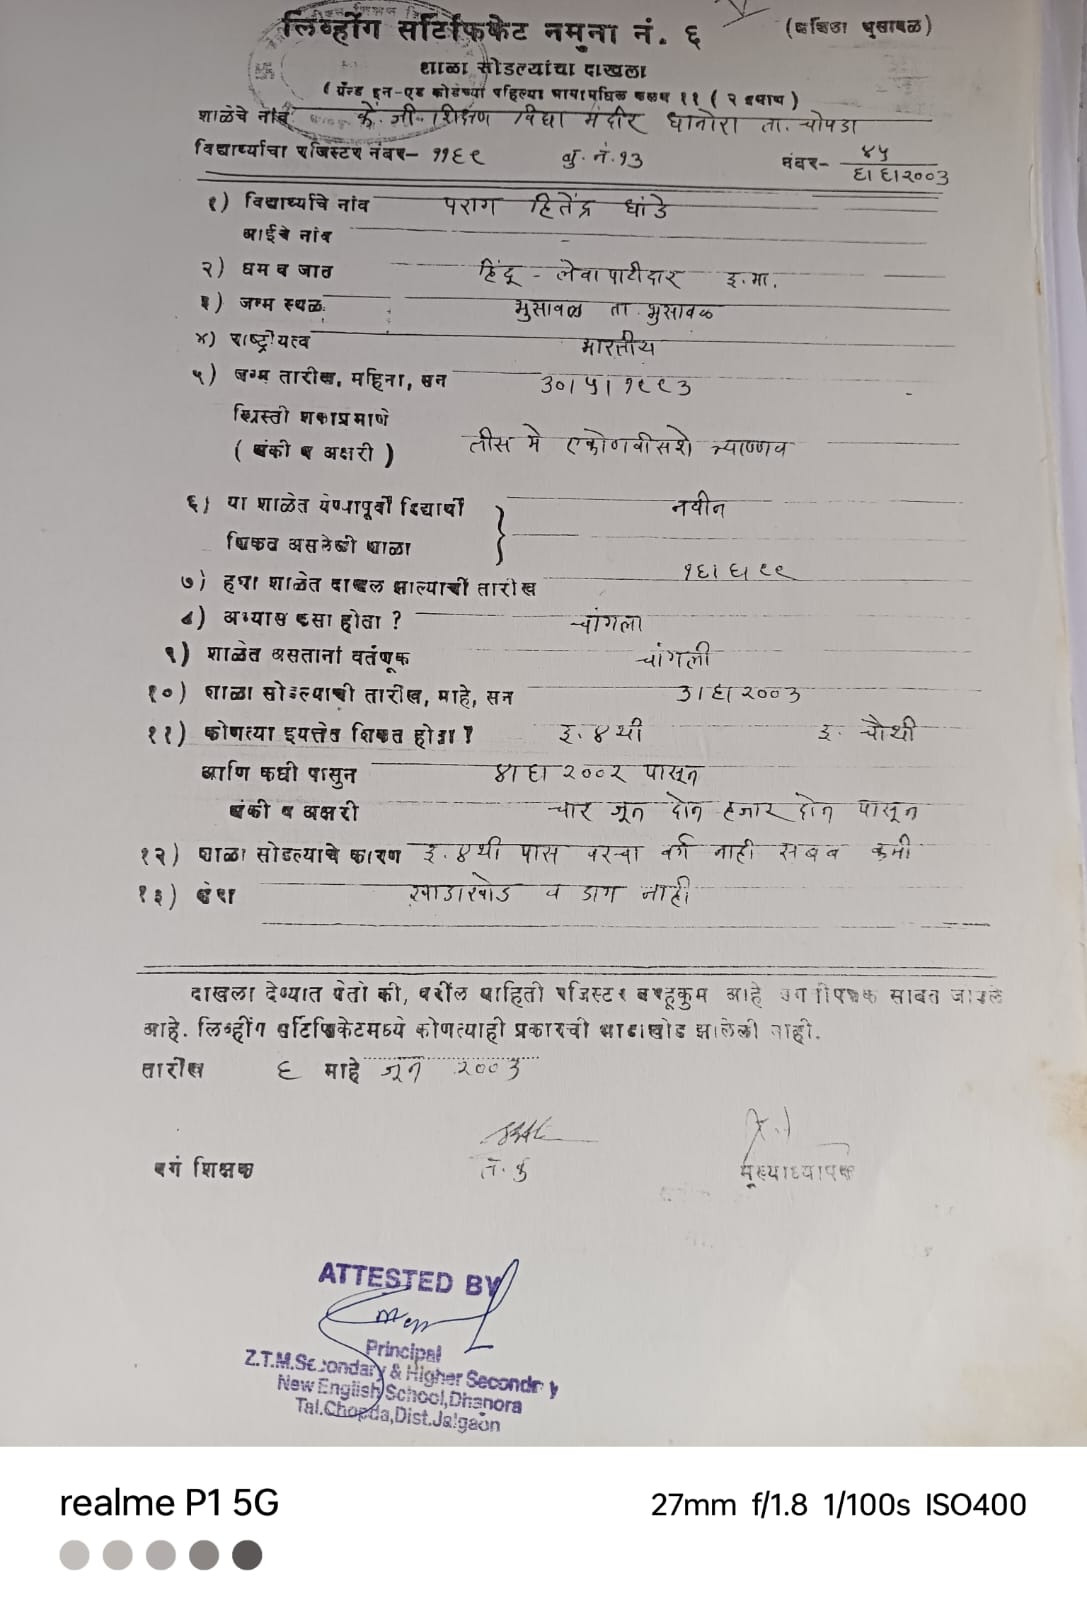 लिव्हींग सर्टिफिकेट नमुना नं. ६
शाळा सोडल्यांचा दाखला
( ग्रॅन्ट इन-एड कोडच्या पहिल्या भागामधिल कलम ११ ( २ प्रमाणे )
शाळेचे नांव के. जी. शिक्षण विद्या मंदीर धानोरा ता. चोपडा
विद्यार्थ्याचा रजिस्टर नंबर- ११६९ बु. नं. १३ नंबर- ४५
६।६।२००३
१) विद्यार्थ्याचे नांव पराग हितेंद्र धांडे
आईचे नांव -
२) धर्म व जात हिंदू - लेवा पाटीदार इ.मा.
३) जन्म स्थळ भुसावळ ता भुसावळ
४) राष्ट्रीयत्व भारतीय
५) जन्म तारीख, महिना, सन ३०।५।१९९३
ख्रिस्ती शकाप्रमाणे
( अंकी व अक्षरी ) तीस मे एकोणवीसशे त्र्याण्णव
६) या शाळेत येण्यापूर्वी विद्यार्थी नवीन
शिकत असलेली शाळा
७) ह्या शाळेत दाखल झाल्याची तारीख १६।६।९९
८) अभ्यास कसा होता ? चांगला
९) शाळेत असतांना वर्तणूक चांगली
१०) शाळा सोडल्याची तारीख, माहे, सन ३।६।२००३
११) कोणत्या इयत्तेत शिकत होता ? इ. ४थी इ. चौथी
आणि कधी पासुन ४।६।२००२ पासून
अंकी व अक्षरी चार जून दोन हजार दोन पासून
१२) शाळा सोडल्याचे कारण इ. ४थी पास वरचा वर्ग नाही सबब कमी
१३) शेरा खाडाखोड व डाग नाही
दाखला देण्यात येतो की, वरील माहिती रजिस्टर बरहूकुम आहे
आहे. लिव्हींग सर्टिफिकेटमध्ये कोणत्याही प्रकारची खाडाखोड झालेली नाही.
तारीख ६ माहे जून २००३
वर्ग शिक्षक मुख्याध्यापक
ATTESTED BY
Principal
Z.T.M.Secondary & Higher Secondry
New English School,Dhanora
Tal.Chopda,Dist.Jalgaon
realme P1 5G 27mm f/1.8 1/100s ISO400